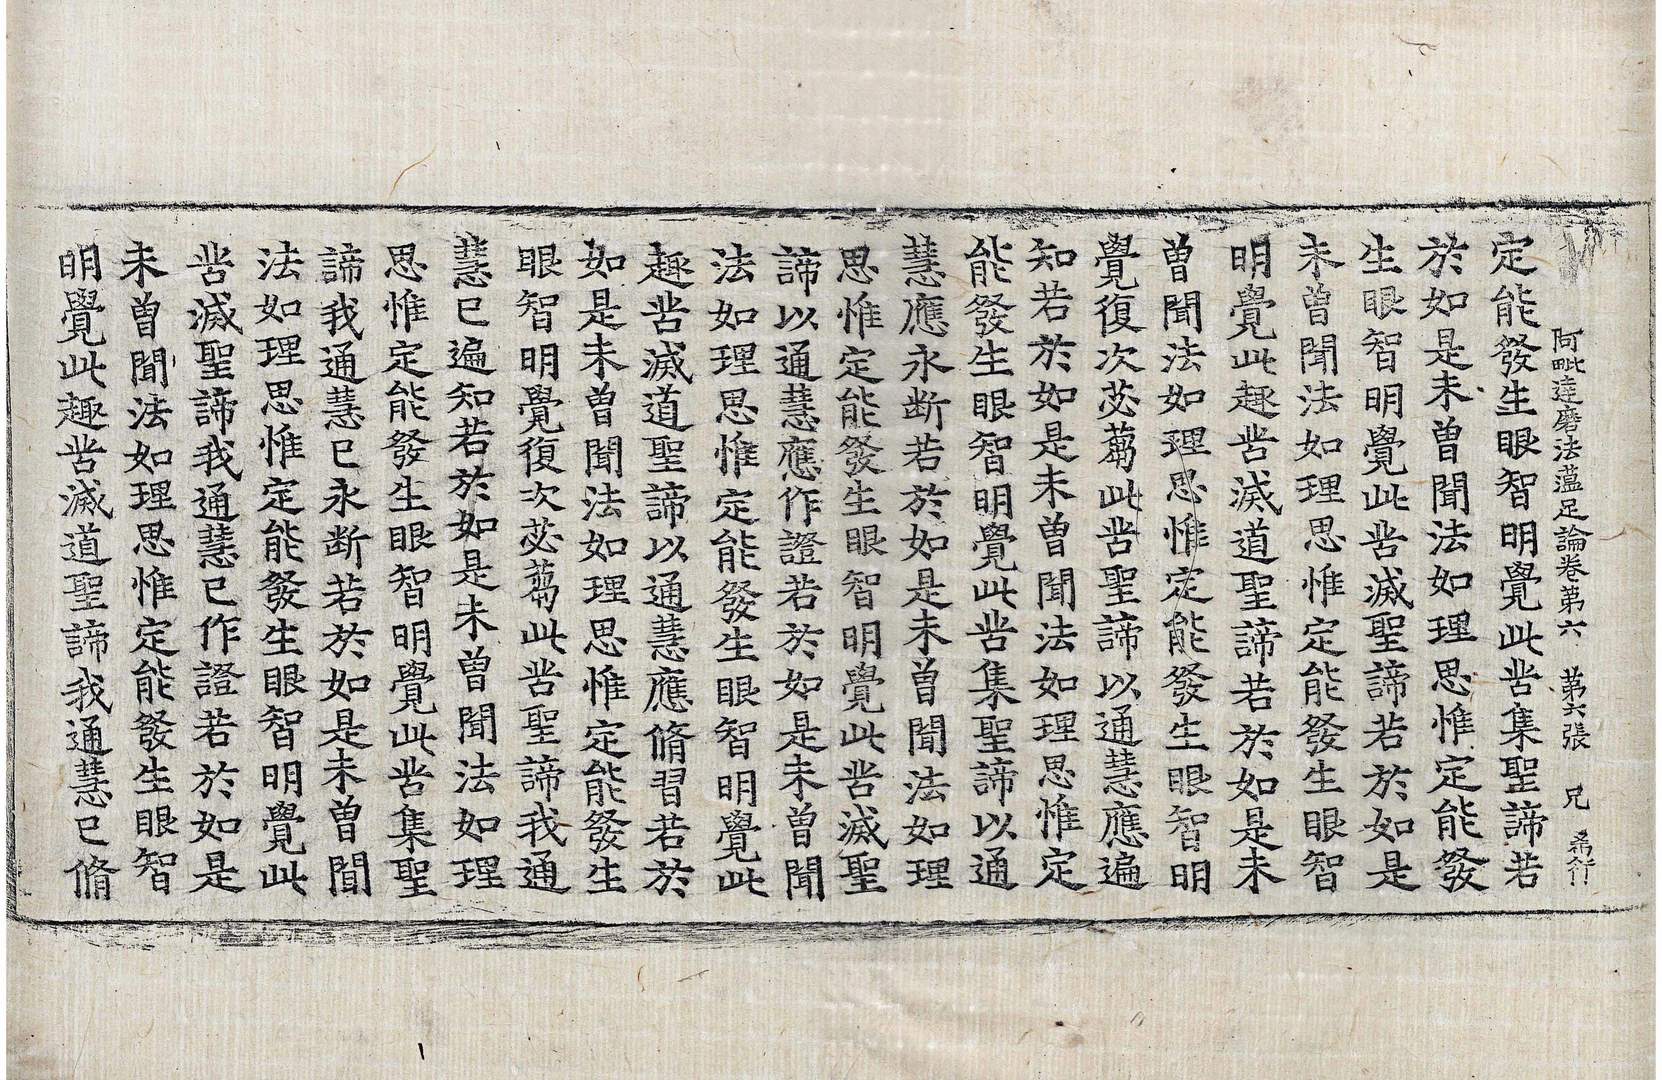 阿毗達磨法蘊足論卷第六 第六張 兄
定能發生眼智明覺此苦集聖諦若
於如是未曾聞法如理思惟定能發
生眼智明覺此苦滅聖諦若於如是
未曾聞法如理思惟定能發生眼智
明覺此趣苦滅道聖諦若於如是未
曾聞法如理思惟定能發生眼智明
覺復次苾蒭此苦聖諦以通慧應遍
知若於如是未曾聞法如理思惟定
能發生眼智明覺此苦集聖諦以通
慧應永斷若於如是未曾聞法如理
思惟定能發生眼智明覺此苦滅聖
諦以通慧應作證若於如是未曾聞
法如理思惟定能發生眼智明覺此
趣苦滅道聖諦以通慧應脩習若於
如是未曾聞法如理思惟定能發生
眼智明覺復次苾蒭此苦聖諦我通
慧已遍知若於如是未曾聞法如理
思惟定能發生眼智明覺此苦集聖
諦我通慧已永斷若於如是未曾聞
法如理思惟定能發生眼智明覺此
苦滅聖諦我通慧已作證若於如是
未曾聞法如理思惟定能發生眼智
明覺此趣苦滅道聖諦我通慧已脩